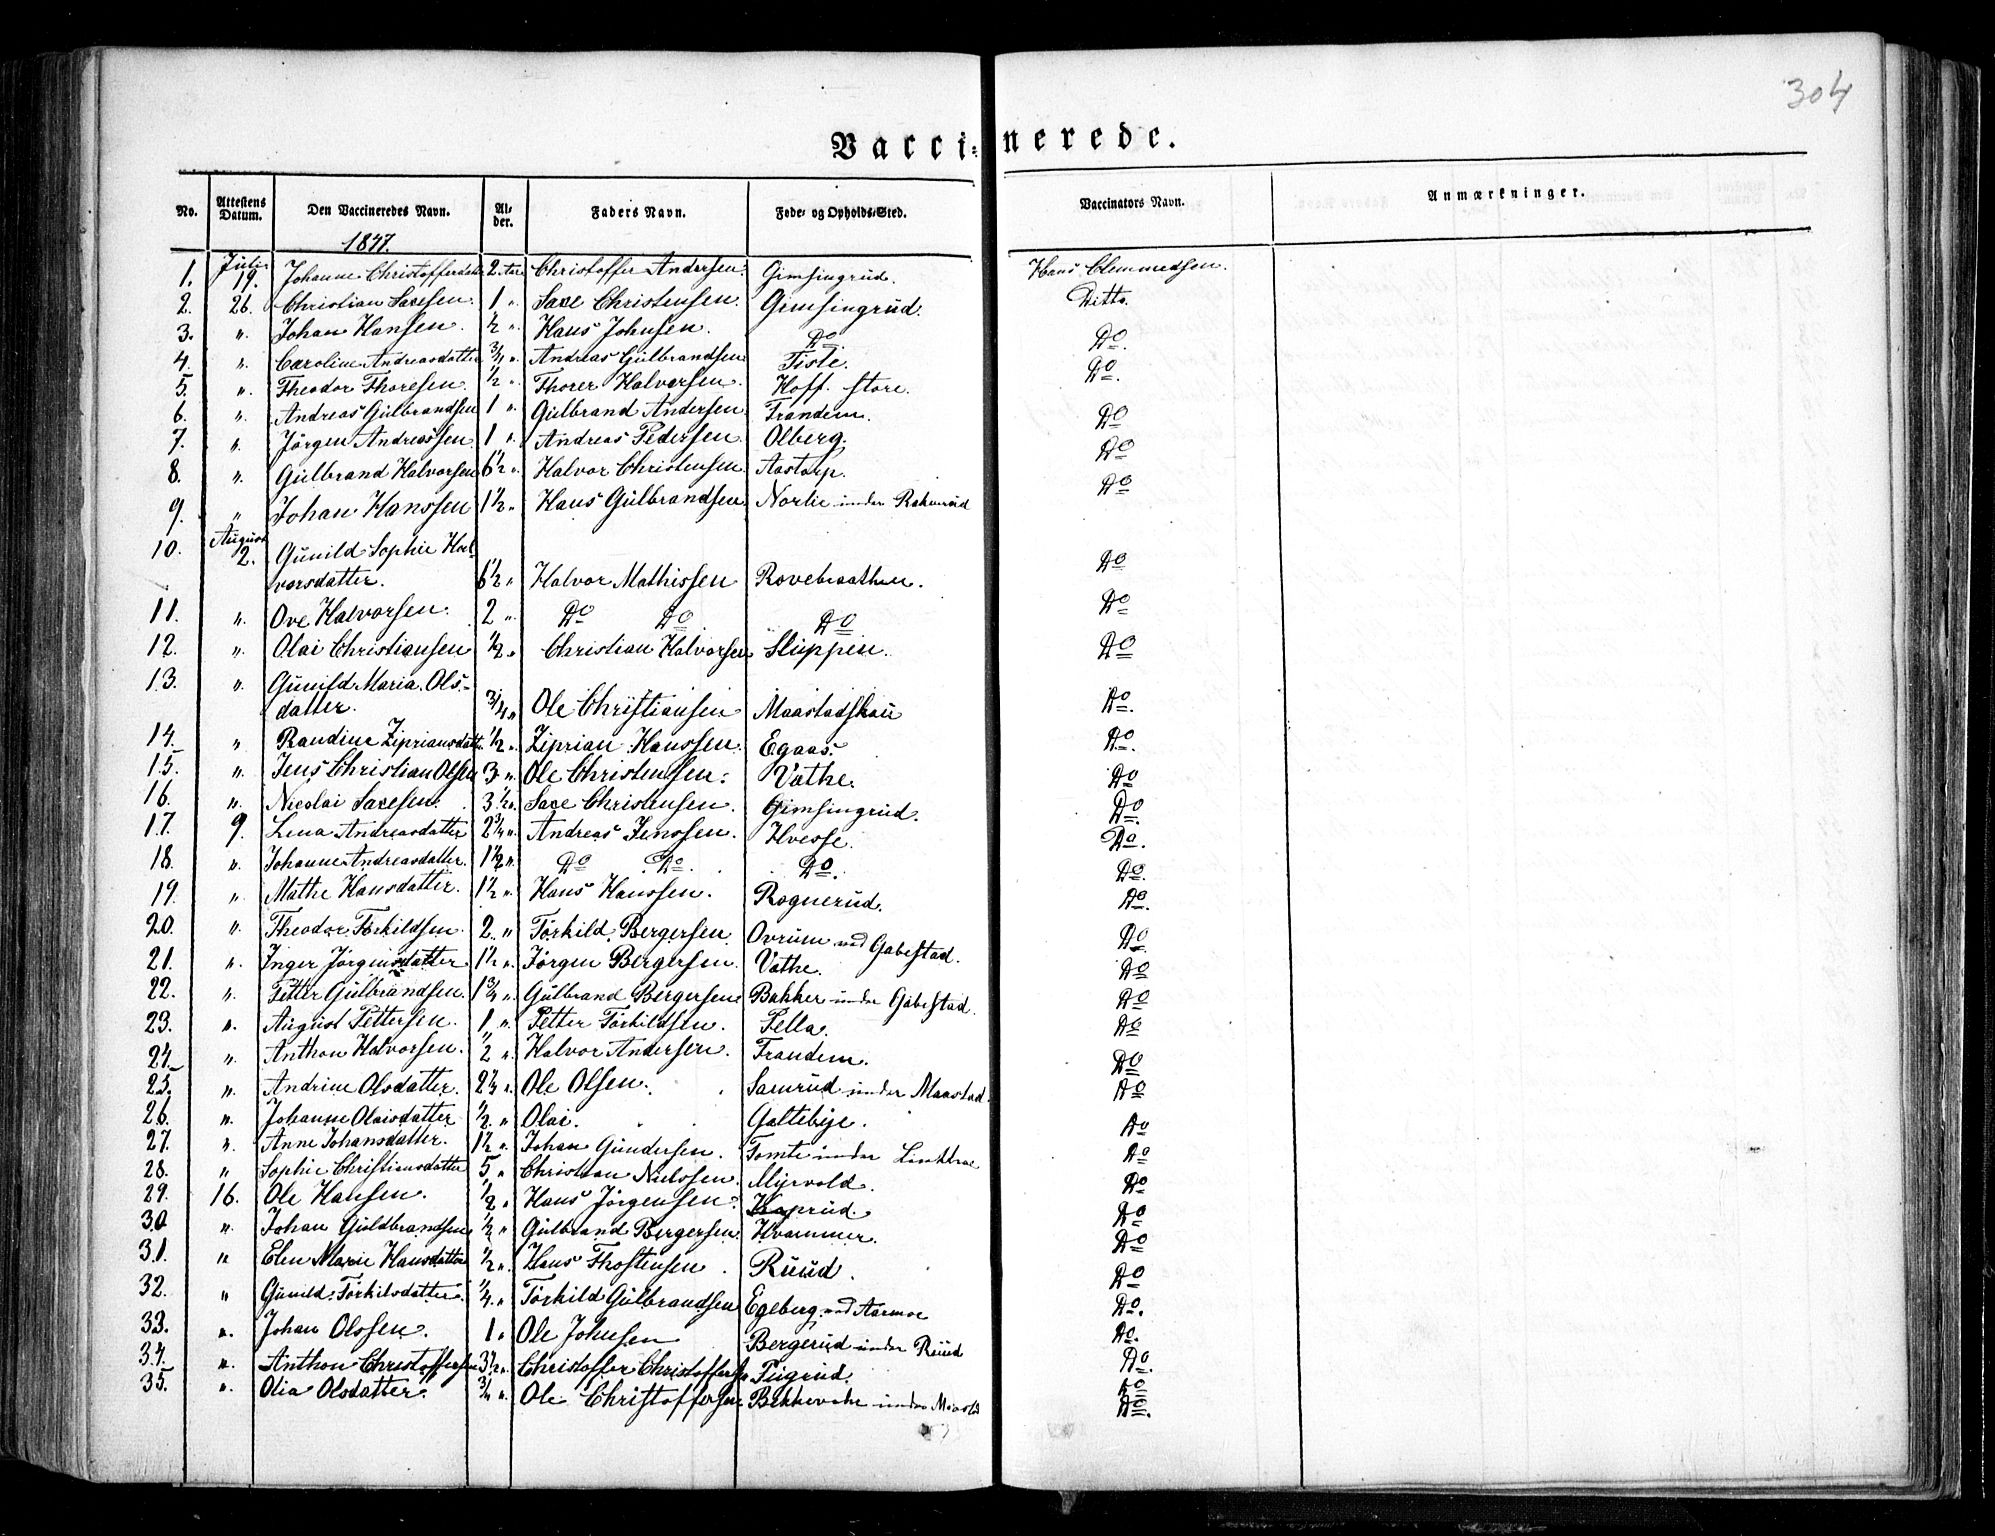 304
Vaccinerede.
No. Attestens Datum. Den Vaccineredes Navn. Alder. Faders Navn. Føde- og Opholds-Sted. Vaccinators Navn. Anmærkninger.
1847.
1. Juli 19. Johanne Christofferdatt 2 Aar Christoffer Andersen. Gimsingrud. Hans Clemmedsen.
2. 26. Christian Saxesen. 1 " Saxe Christensen. Gimsingrud. Ditto.
3. " Johan Hansen. ½ " Hans Johnsen. Do. Do.
4. " Caroline Andreasdatter ¾ " Andreas Gulbrandsen Tiste. Do.
5. " Theodor Thoresen. ½ " Thorer Halvorsen. Hoff store.
6. " Andreas Gulbrandsen 1 " Gulbrand Andersen Frandem. Do
7. " Jørgen Andreassen 1 " Andreas Pedersen. Olberg. Do
8. " Gulbrand Halvorsen 6½ " Halvor Christensen. Aastorp. Do
9. " Johan Hanssen 1½ " Hans Gulbrandsen. Norlie under
10. August 2. Gunild Sophie Hal-
vorsdatter. 6½ " Halvor Mathissen Rovebraathen. Do
11. " Ove Halvorsen. 2 " Do Do Do Do
12. " Olai Christiansen ½ " Christian Halvorsen Sluppen. Do
13. " Gunild Maria Ols-
datter. ¾ " Ole Christiansen Maastadskau Do.
14. " Randine Zipriansdatt. ½ " Ziprian Hanssen. Egaas. Do.
15. " Jens Christian Olsen 3 " Ole Christensen. Vathe. Do
16. " Nicolai Saxesen. 3½ " Saxe Christensen. Gimsingrud. Do.
17. 9. Lena Andreasdatter 2¾ " Andreas Jenssen. Hvesse. Do.
18. " Johanne Andreasdatter. 1½ " Do Do. Do. Do.
19. " Mathe Hansdatter. 1½ " Hans Hanssen. Rognerud. Do.
20. " Theodor Torkildsen 2 " Torkild Bergersen Ovrum ved Gabestad. Do
21. " Inger Jørginsdatter 1½ " Jørgen Bergersen. Vathe. Do
22. " Petter Gulbrandsen. 1¾ " Gulbrand Bergersen Bakker under Gabestad. Do
23. " August Pettersen. 1 " Petter Torkildsen. Sella. Do
24. " Anthon Halvorsen. ½ " Halvor Andersen. Frandem. Do
25. " Andrine Olsdatter. 2½ " Ole Olsen. Samrud under Maastad. Do
26. " Johanne Olaisdatter ½ " Olai. Galtebye. Do
27. " Anne Johansdatter. 1½ " Johan Gundersen. Tomte under Do
28. " Sophie Christiansdatter 5 " Christian Nielssen. Myrvold. Do
29. 16. Ole Hansen. ½ " Hans Jørgensen. Haprud. Do
30. " Johan Guldbrandsen ½ " Gulbrand Bergersen. Kvammer. Do
31. " Elen Marie Hansdatter ½ " Hans Thostensen. Ruud. Do
32. " Gunild Torkilsdatter. ¼ " Torkild Gulbrandsen Egeberg ved Aarmoe Do.
33. " Johan Olssen. 1 " Ole Johnsen Bergerud under Ruud Do.
34. " Anthon Christoffersen 3½ " Christoffer Christoffersen Tugrud. Do
35. " Olia Olsdatter. ¾ " Ole Christoffersen under Do
Do.